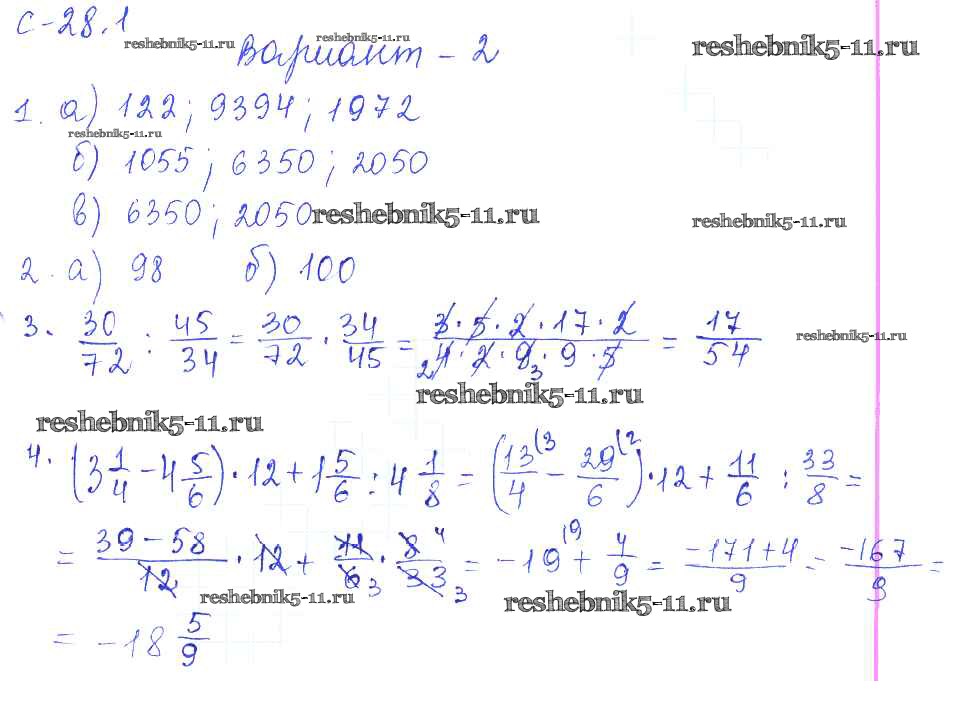 С-28.1
reshebnik5-11.ru reshebnik5-11.ru
Вариант - 2 reshebnik5-11.ru
1. а) 122; 9394; 1972
reshebnik5-11.ru
б) 1055; 6350; 2050
в) 6350; 2050 reshebnik5-11.ru reshebnik5-11.ru
2. а) 98 б) 100
3. 30/72 : 45/34 = 30/72 · 34/45 = 3·5·2·17·2/4·2·9·9·5 = 17/54 reshebnik5-11.ru
2 3
reshebnik5-11.ru
reshebnik5-11.ru
4. (3 1/4 - 4 5/6) · 12 + 1 5/6 : 4 1/8 = (13/4 (3 - 29/6 (2) · 12 + 11/6 : 33/8 =
= 39-58/12 · 12 + 11/6 3 · 8 4/33 3 = -19 (9 + 4/9 = -171+4/9 = -167/9 =
reshebnik5-11.ru reshebnik5-11.ru
= -18 5/9